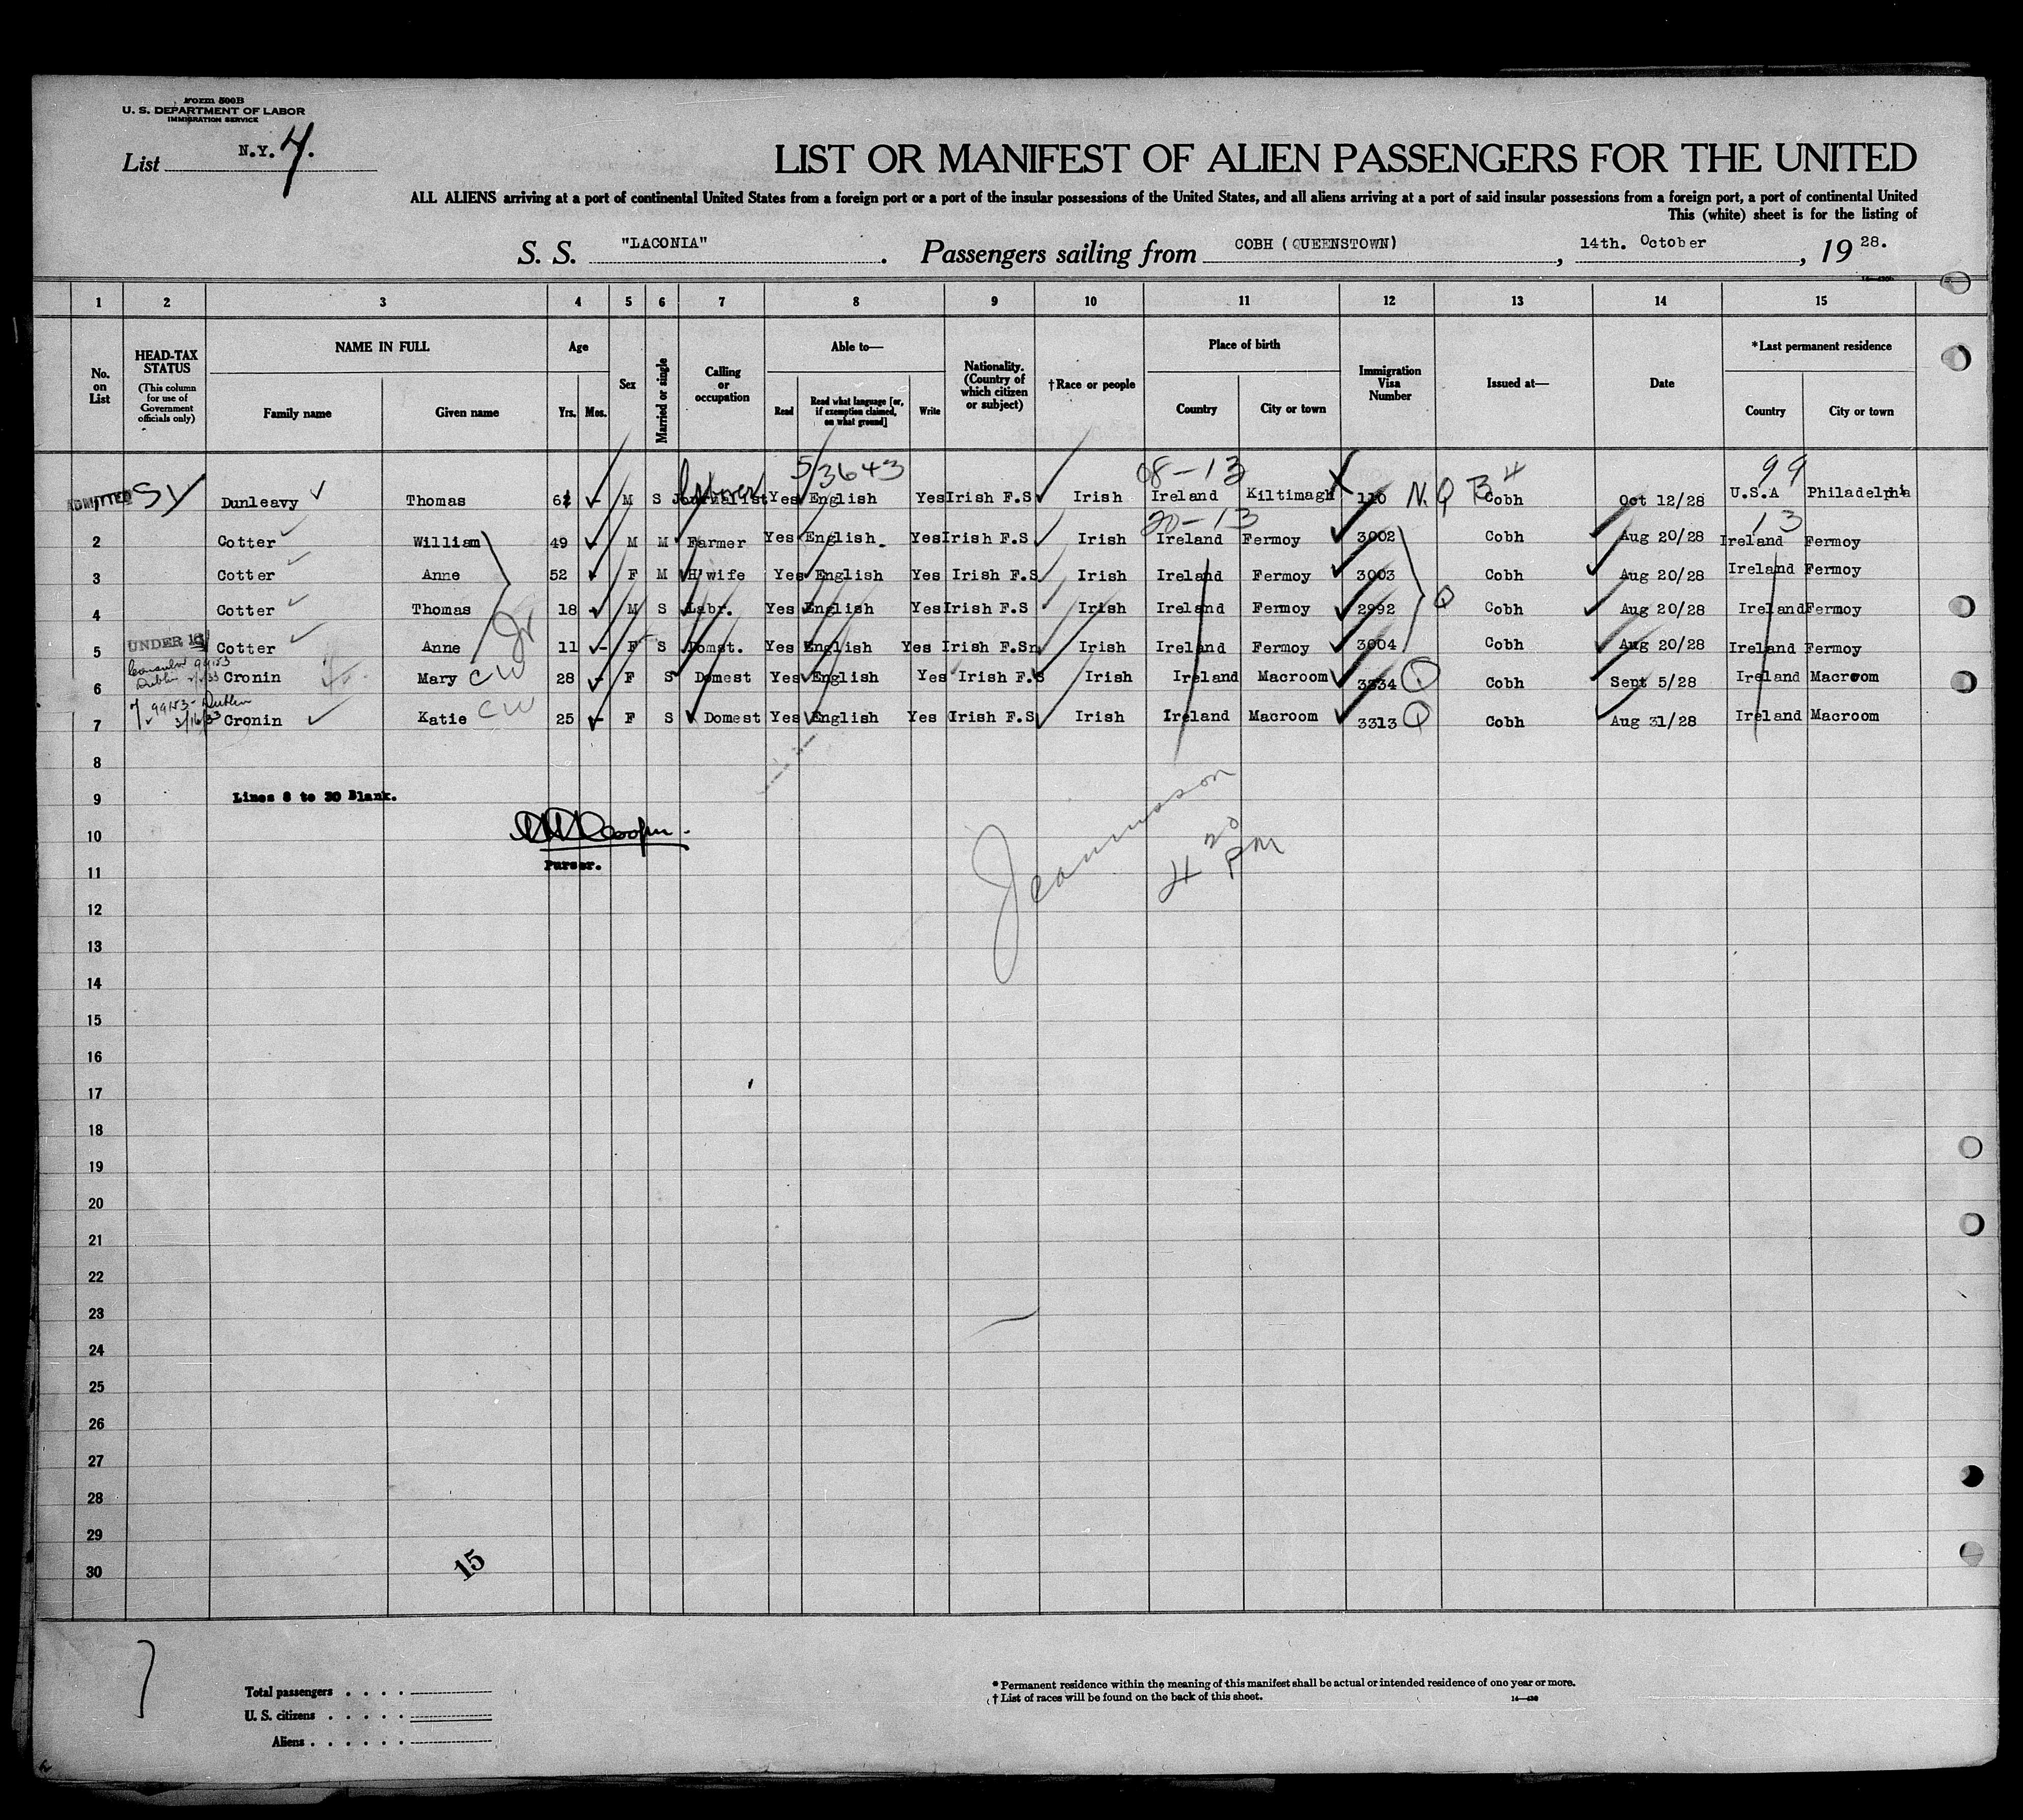 Form 500B
U. S. DEPARTMENT OF LABOR
IMMIGRATION SERVICE
List N.Y. 4.
LIST OR MANIFEST OF ALIEN PASSENGERS FOR THE UNITED
ALL ALIENS arriving at a port of continental United States from a foreign port or a port of the insular possessions of the United States, and all aliens arriving at a port of said insular possessions from a foreign port, a port of continental United
This (white) sheet is for the listing of
S. S. "LACONIA" . Passengers sailing from COBH (QUEENSTOWN) , 14th. October , 19 28.
1 2 3 4 5 6 7 8 9 10 11 12 13 14 15
No. on List
HEAD-TAX STATUS (This column for use of Government officials only)
NAME IN FULL Family name Given name
Age Yrs. Mos.
Sex
Married or single
Calling or occupation
Able to— Read Read what language [or, if exemption claimed, on what ground] Write
Nationality. (Country of which citizen or subject)
†Race or people
Place of birth Country City or town
Immigration Visa Number
Issued at—
Date
*Last permanent residence Country City or town
5/3643 08-13 99
ADMITTED SY Dunleavy Thomas M S Journalist Yes English Yes Irish F.S Irish Ireland Kiltimagh 110 N.Q B4 Cobh Oct 12/28 U.S.A Philadelphia
20-13 13
2 Cotter William 49 - M M Farmer Yes English. Yes Irish F.S Irish Ireland Fermoy 3002 Cobh Aug 20/28 Ireland Fermoy
3 Cotter Anne 52 F M H'wife Yes English Yes Irish F.S Irish Ireland Fermoy 3003 Cobh Aug 20/28 Ireland Fermoy
4 Cotter Thomas 18 - M S Labr. Yes English Yes Irish F.S Irish Ireland Fermoy 2992 Q Cobh Aug 20/28 Ireland Fermoy
5 UNDER 16 Cotter Anne Jr 11 - F S Domst. Yes English Yes Irish F.S Irish Ireland Fermoy 3004 Cobh Aug 20/28 Ireland Fermoy
6 Dublin Cronin Mary CW 28 - F S Domest Yes English Yes Irish F.S Irish Ireland Macroom 3334 Q Cobh Sept 5/28 Ireland Macroom
7 99153 - Dublin 3/16/33 Cronin Katie CW 25 - F S Domest Yes English Yes Irish F.S Irish Ireland Macroom 3313 Q Cobh Aug 31/28 Ireland Macroom
8
9 Lines 8 to 30 Blank.
10
11 Purser. 4 20 PM
12
13
14
15
16
17
18
19
20
21
22
23
24
25
26
27
28
29
30
15
7
Total passengers
U. S. citizens
Aliens
* Permanent residence within the meaning of this manifest shall be actual or intended residence of one year or more.
† List of races will be found on the back of this sheet.